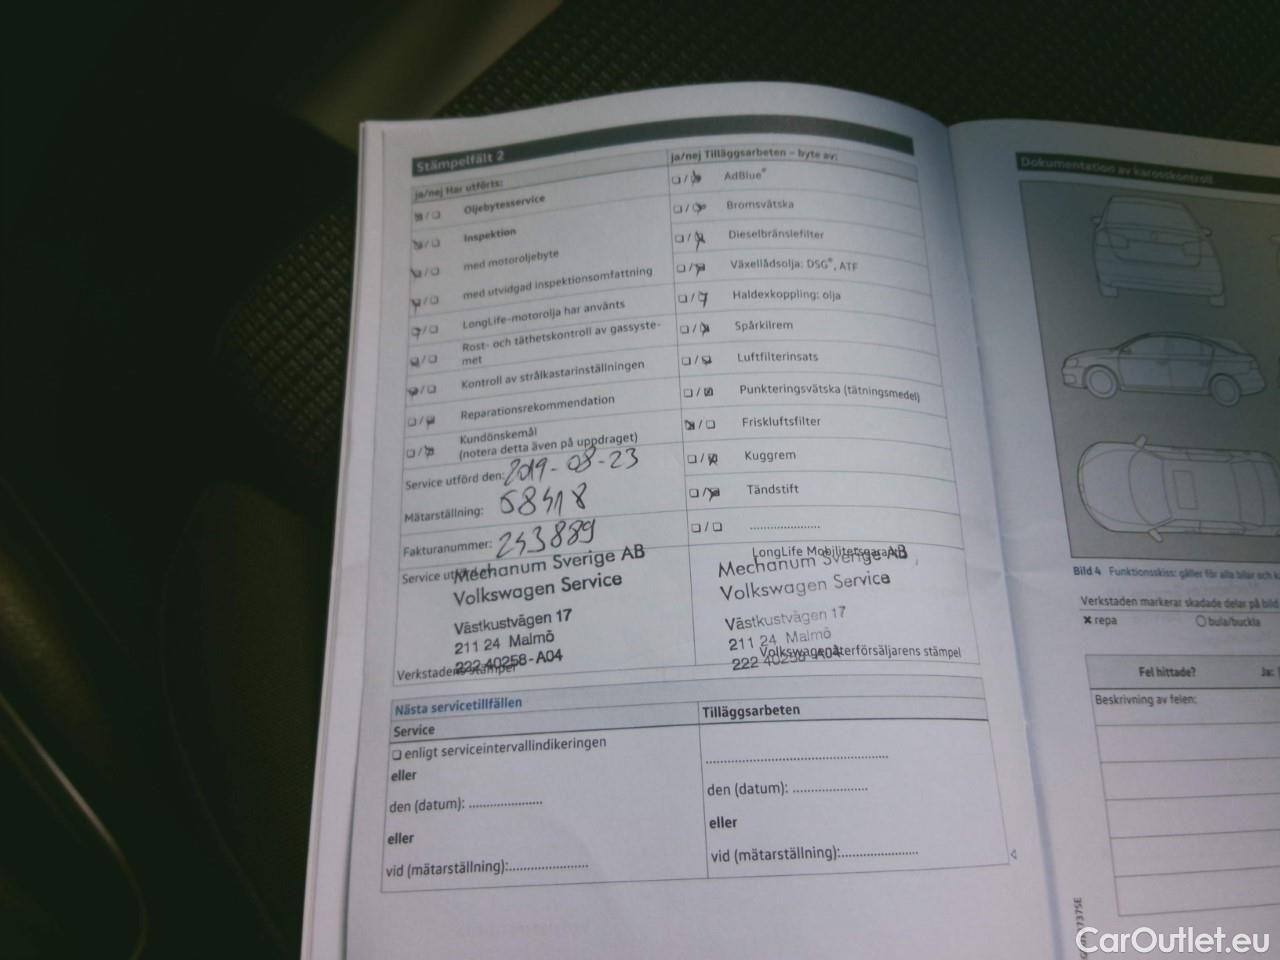 Stämpelfält 2
ja/nej Har utförts:
Oljebytesservice
Inspektion
med motoroljebyte
med utvidgad inspektionsomfattning
LongLife-motorolja har använts
Rost- och täthetskontroll av gassyste-
met
Kontroll av strålkastarinställningen
Reparationsrekommendation
Kundönskemål
(notera detta även på uppdraget)
Service utförd den: 2019-08-23
Mätarställning: 58418
Fakturanummer: 243889
Service
Mechanum Sverige AB
Volkswagen Service
Västkustvägen 17
211 24 Malmö
222 40258-A04
Verkstadens stämpel
ja/nej Tilläggsarbeten – byte av:
AdBlue®
Bromsvätska
Dieselbränslefilter
Växellådsolja: DSG®, ATF
Haldexkoppling: olja
Spårkilrem
Luftfilterinsats
Punkteringsvätska (tätningsmedel)
Friskluftsfilter
Kuggrem
Tändstift
.....................
LongLife Mobilitetsgaranti
Mechanum Sverige AB
Volkswagen Service
Västkustvägen 17
211 24 Malmö
222 40258-A04
Volkswagenåterförsäljarens stämpel
Nästa servicetillfällen
Service
enligt serviceintervallindikeringen
eller
den (datum): .....................
eller
vid (mätarställning):.....................
Tilläggsarbeten
..................................................
den (datum): .....................
eller
vid (mätarställning):.....................
Dokumentation av karosskontroll
Bild 4 Funktionsskiss: gäller för alla bilar och
Verkstaden markerar skadade delar på bild
repa
bula/buckla
Fel hittade?
Ja:
Beskrivning av felen:
CarOutlet.eu